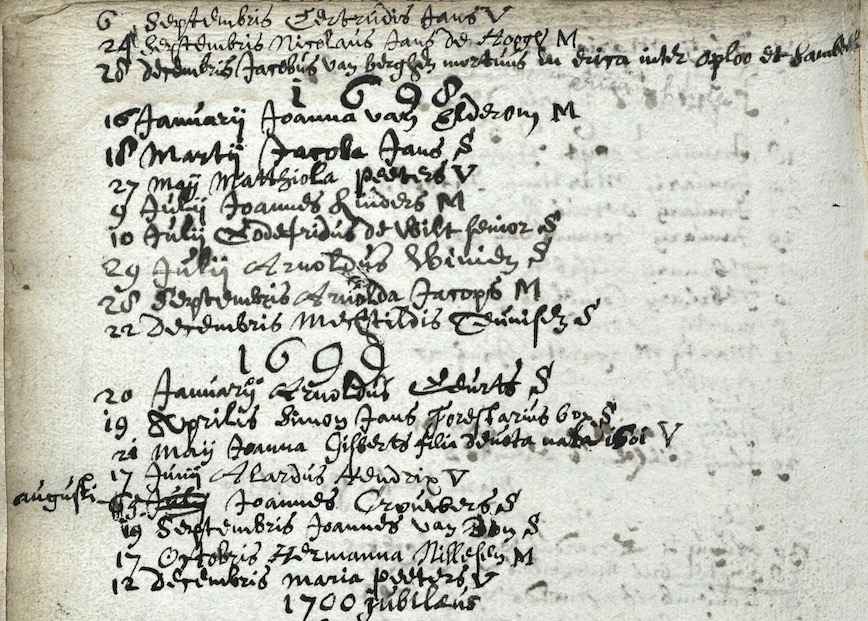 6 Septembris Gertrudis Jans V
24 Septembris Nicolaus Jans de Hoogh M
28 decembris Jacobus van berghen mortuus in erica inter oploo et
1698
16 Januarij Joanna van Elderom M
18 Martij Jacoba Jans S
27 Maij Matthiola peeters V
9 Julij Joannes Kinders M
10 Julij Godefridus de Wilt senior S
29 Julij Arnoldus Winien S
28 Septembris Arnolda Jacops M
22 Decembris Mechtildis Teunissen S
1699
20 Januarij Arnoldus Geurts S
19 Aprilis Simon Jans forestarius S
21 Maij Joanna Gisberts filia devota nata 1601 V
17 Junij Alardus Hendrix V
augusti Julij Joannes Crouwers S
19 Septembris Joannes van Bon S
17 Octobris Hermanna Nillesen M
12 decembris maria peeters V
1700 jubilaeus